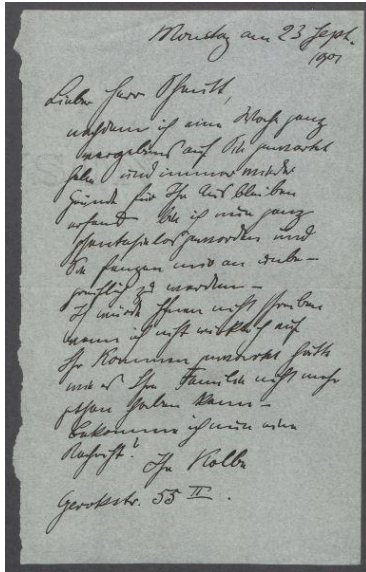 Montag am 23 Sept.
1901
Lieber Herr Schmitt,
nachdem ich eine Woche ganz
vergebens auf Sie gewartet
habe und immer wieder
Gründe für Ihr Ausbleiben
erfand bin ich nun ganz
phantasielos geworden und
Sie fangen mir an unbe-
greiflich zu werden -
Ich würde Ihnen nicht schreiben
wenn ich nicht wirklich auf
Ihr Kommen gewartet hätte
wie es Ihre Familie nicht mehr
gethan haben kann -
Bekomme ich nun eine
Nachricht?
Ihr Kolbe
Gerokstr. 55 II.